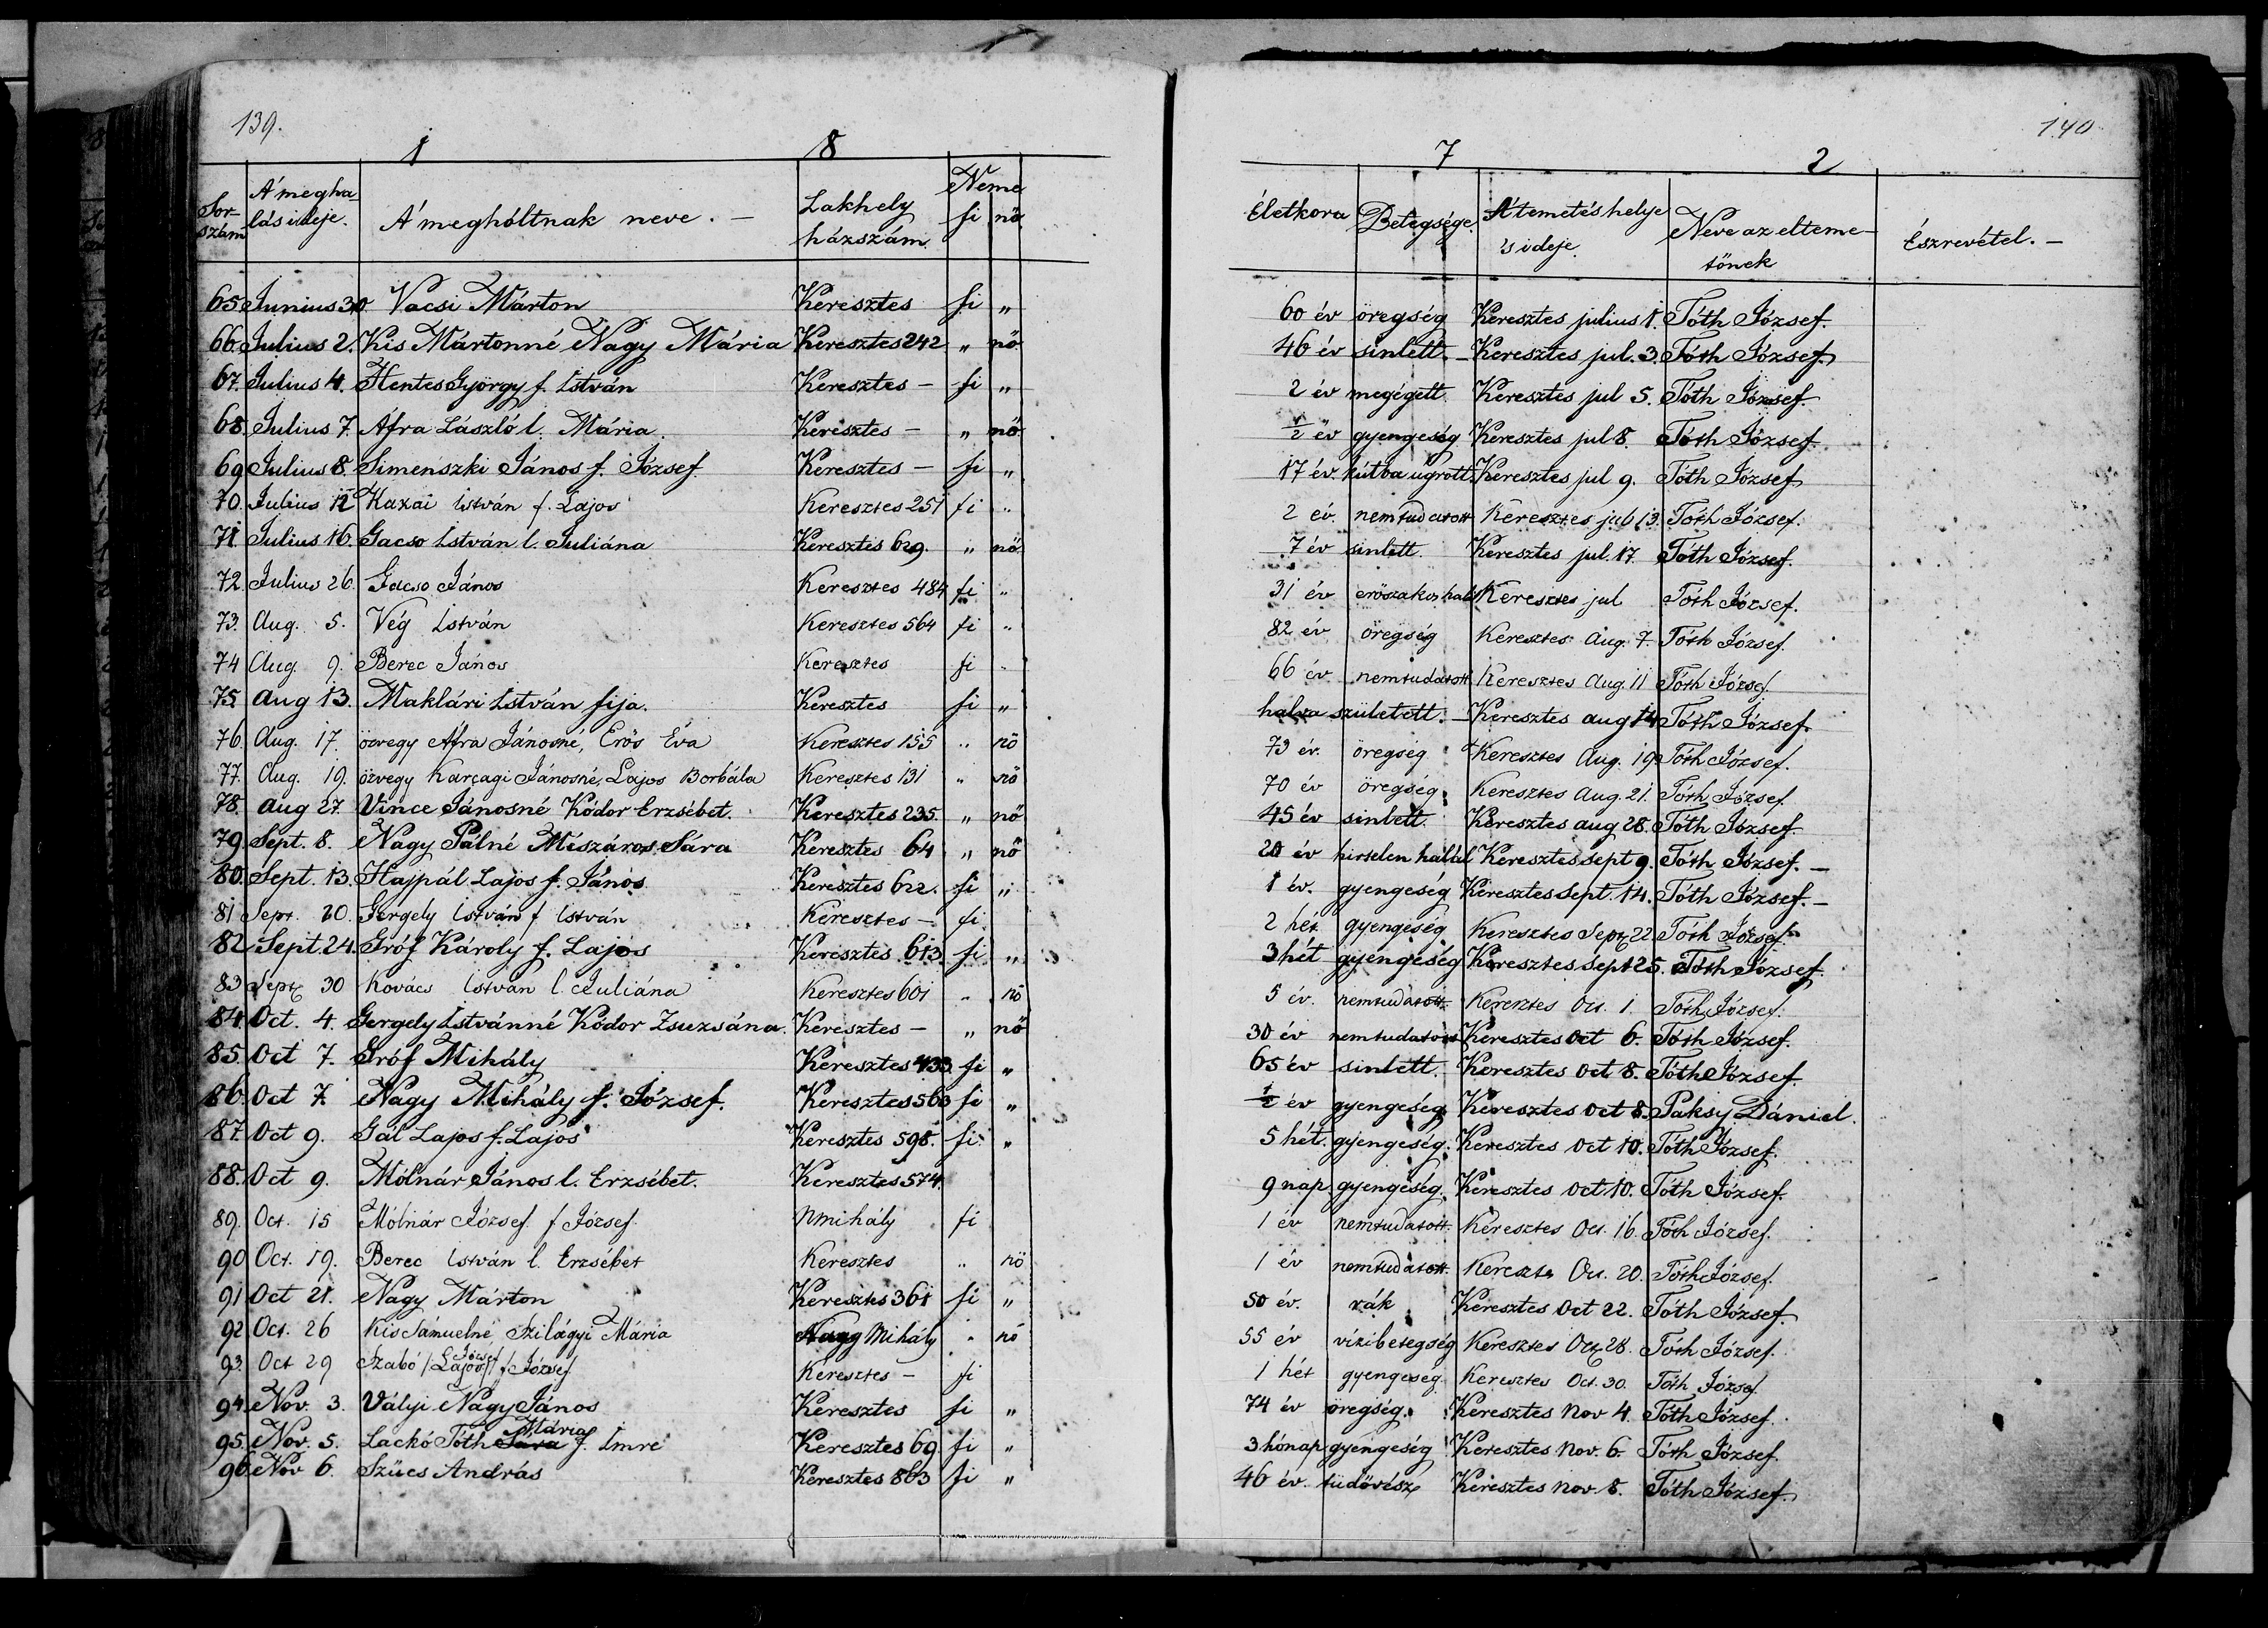 139.
1 8
Sorszám A' meghalás ideje. A' megholtnak neve. — Lakhely házszám. Neme fi nö
65 Junius 30 Vacsi Márton Keresztes fi „
66. Julius 2. Kis Mártonné Nagy Mária Keresztes 242 „ nö
67. Julius 4. Hentes György f. István Keresztes – fi „
68. Julius 7. Áfra László l. Mária Keresztes – „ nö
69 Julius 8. Simenszki János f. József Keresztes – fi „
70. Julius 12 Kazai István f. Lajos Keresztes 251 fi „
71 Julius 16. Gacso István l. Juliána Keresztes 629. „ nö
72. Julius 26. Gacso János Keresztes 484 fi „
73. Aug. 5. Vég István Keresztes 564 fi „
74 Aug. 9. Berec János Keresztes fi „
75. Aug 13. Maklári István fija. Keresztes fi „
76. Aug. 17. özvegy Áfra Jánosné, Erös Éva Keresztes 155 „ nö
77. Aug. 19. özvegy Karcagi Jánosné, Lajos Borbála Keresztes 131 „ nö
78. Aug 27. Vince Jánosné Kódor Erzsébet. Keresztes 235. „ nö
79. Sept. 8. Nagy Pálné Mészáros Sára Keresztes 64 „ nö
80. Sept. 13. Hajpál Lajos f. János Keresztes 622. fi „
81 Sept. 20. Gergely István f István Keresztes – fi
82 Sept. 24. Gróf Károly f. Lajos Keresztes 613. fi „
83 Sept 30 Kovács István l. Juliána Keresztes 601 „ nö
84. Oct. 4. Gergely Istvánné Kódor Zsuzsána. Keresztes – „ nö
85. Oct 7. Gróf Mihály Keresztes 433. fi „
86. Oct 7. Nagy Mihály f. József. Keresztes 563 fi „
87. Oct 9. Gál Lajos f. Lajos Keresztes 598. fi „
88. Oct 9. Mólnár János l. Erzsébet. Keresztes 574.
89. Oct. 15 Mólnár József f József Nmihály fi
90 Oct. 19. Berec István l. Erzsébet Keresztes „ nö
91 Oct 21. Nagy Márton Keresztes 361 fi „
92 Oct. 26 Kis Sámuelné, Szilágyi Mária Nagy Mihály „ nö
93. Oct 29 Szabó /Lajos/ József f József Keresztes – fi
94. Nov. 3. Vályi Nagy János Keresztes fi „
95. Nov. 5. Lackó Tóth Sára Mária f. Imre Keresztes 69. fi „
96 Nov 6. Szücs András Keresztes 863 fi „
140
7 2
Életkora Betegsége. A' temetés helye 's ideje. Neve az eltemetönek Észrevétel. —
60 év öregség Keresztes julius 1. Tóth József.
46 év sinlett. – Keresztes jul. 3. Tóth József.
2 év megégett. Keresztes jul 5. Tóth József.
1/2 év gyengeség Keresztes jul 8. Tóth József.
17 év. kútba ugrott. Keresztes jul 9. Tóth József
2 év. nemtudatott Keresztes jul 13. Tóth József.
7 év sinlett. Keresztes jul. 17 Tóth József.
31 év eröszakos halál Keresztes jul Tóth József.
82 év öregség Keresztes Aug. 7. Tóth József.
66 év nemtudatott Keresztes Aug. 11 Tóth József.
halva született. – Keresztes aug 14. Tóth József.
73 év. öregség Keresztes Aug. 19 Tóth József.
70 év öregség Keresztes Aug. 21. Tóth József.
45 év sinlett. Keresztes aug 28. Tóth József
20 év hirtelen halál Keresztes sept 9. Tóth József. —
1 év. gyengeség Keresztes Sept. 14. Tóth József. –
2 hét gyengeség Keresztes Sept 22. Tóth József.
3 hét gyengeség Keresztes Sept 25. Tóth József.
5 év. nemtudatott Keresztes Oct. 1. Tóth József.
30 év nemtudatott Keresztes Oct 6. Tóth József.
65 év sinlett. Keresztes Oct 8. Tóth József
1/2 év gyengeség Keresztes Oct 8. Paksy Dániel.
5 hét. gyengeség. Keresztes Oct 10. Tóth József.
9 nap. gyengeség. Keresztes Oct 10. Tóth József.
1 év nemtudatott. Keresztes Oct. 16. Tóth József.
1 év nemtudatott. Keresztes Oct. 20. Tóth József.
50 év. rák Keresztes Oct 22. Tóth József.
55 év vizibetegség Keresztes Oct 28. Tóth József.
1 hét gyengeség Keresztes Oct. 30. Tóth József
74 év öregség. Keresztes Nov 4. Tóth József.
3 hónap gyengeség Keresztes Nov. 6. Tóth József.
46 év. tüdövész Keresztes Nov. 8. Tóth József.